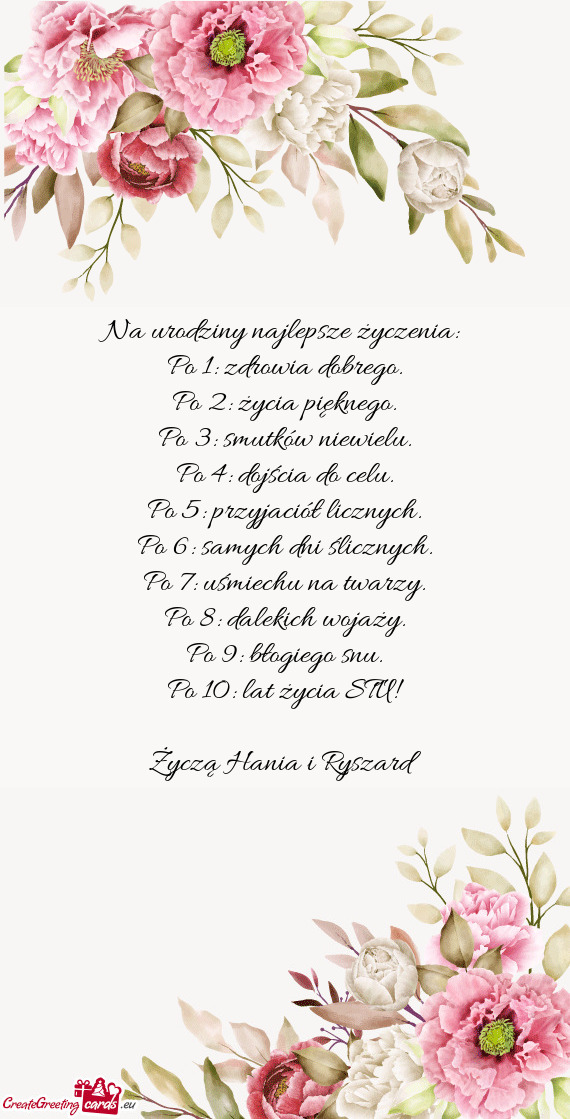 Na urodziny najlepsze życzenia:
Po 1: zdrowia dobrego.
Po 2: życia pięknego.
Po 3: smutków niewielu.
Po 4: dojścia do celu.
Po 5: przyjaciół licznych.
Po 6: samych dni ślicznych.
Po 7: uśmiechu na twarzy.
Po 8: dalekich wojaży.
Po 9: błogiego snu.
Po 10: lat życia STU!
Życzą Hania i Ryszard
CreateGreeting cards .eu